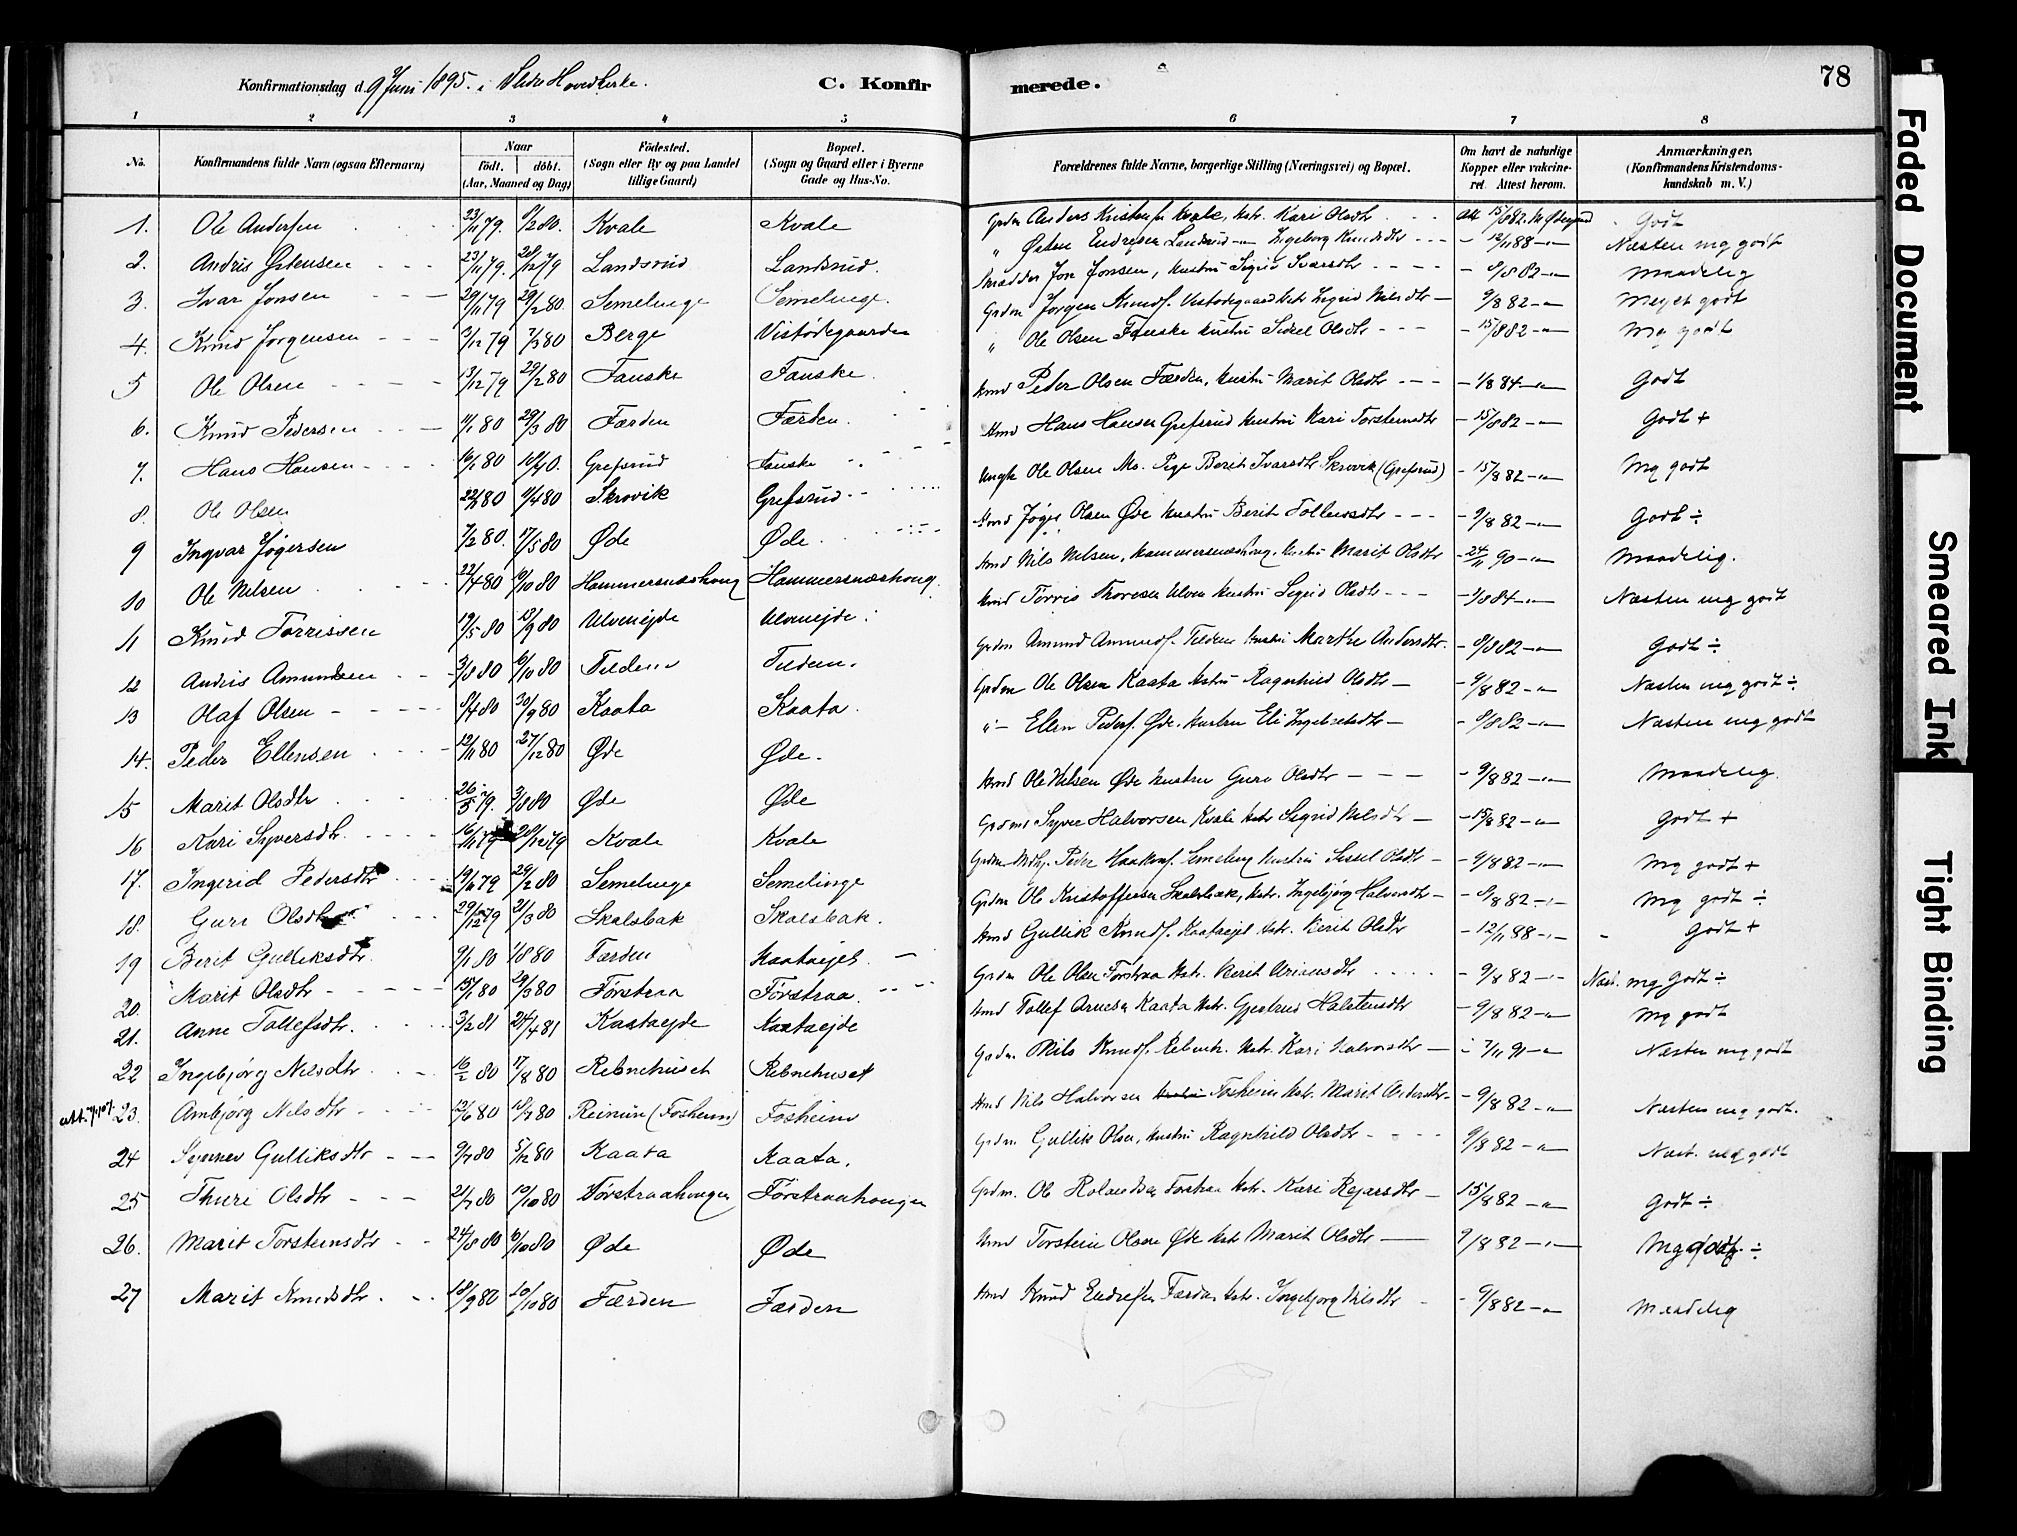 Konfirmationsdag d. 9 Juni 1895. i Slidre Hovedkirke.
C. Konfir
merede.
78
1 2 3 4 5 6 7 8
No.
Konfirmandens fulde Navn (ogsaa Efternavn)
Naar
født. døbt.
(Aar, Maaned og Dag)
Födested.
(Sogn eller By og paa Landet
tillige Gaard)
Bopæl.
(Sogn og Gaard eller i Byerne
Gade og Hus-No.
Forældrenes fulde Navne, borgerlige Stilling (Næringsvei) og Bopæl.
Om havt de naturlige
Kopper eller vakcine-
ret. Attest herom.
Anmærkninger.
(Konfirmandens Kristendoms-
kundskab m. V.)
1. Ole Andersen 23/11 79. 8/2 80. Kvale Kvale Grdm Anders Kristens. Kvale, Hstr. Kari Olsdtr 15/8 82. Godt
2. Andris Østensen 23/11 79. 28/12 79 Landsrud Landsrud. " Østen Endresen Landsrud Ingeborg Knudsdtr - 12/11 88 Næsten mg godt
3. Ivar Jonsen 29/11 79 29/2 80. Semelenge Semelenge. Skrædder Jon Jonsen, Hustru Sigrid Ivarsdtr - 9/8 82 Maadelig
4. Knud Jørgensen 3/12 79 7/3 80 Berge Vistødegaarden Grdm Jørgen Knuds. Vistødegaard Hstr Sigrid Nilsdtr 9/8 82 Meget godt
5 Ole Olsen 13/12 79 29/2 80 Fauske Fauske. " Ole Olsen Fauske Hustru Sidsel Olsdtr - 15/8 82 Mg godt
6. Knud Pedersen 1/1 80 29/3 80 Færden Færden. Hmd Peder Olsen Færden, Hustru Marit Olsdtr - 1/8 84 Godt
7. Hans Hansen 16/1 80 Grefsrud Fauske Hmd Hans Hansen Grefsrud Hustru Kari Torsteinsdtr - 15/8 82 Godt +
8. Ole Olsen 22/1 80 11/4 80 Skrovik Grefsrud Ungk Ole Olsen Mo. Pige Berit Ivarsdtr Skrovik (Grefsrud) - 15/8 82 Mg godt
9 Ingvar Jøgersen 7/2 80. 17/5 80 Øde Øde. Hmd Jøger Olsen Øde Hustru Berit Tollevsdtr - 9/8 82 Godt ÷
10 Ole Nilsen 22/4 80 10/10 80 Hammersnæshoug Hammersnæshoug. Hmd Nils Nilsen, Hammersnæshoug, Hustru Marit Olsdtr - 24/11 90 Maadelig.
11 Knud Torrissen 19/5 80 12/9 80 Ulvenejde Ulvenejde. Hmd Torris Thoresen Ulven Hustru Sigrid Olsdtr - 1/8 84 Næsten mg godt
12 Andris Amundsen 3/8 80 6/10 80 Tilden Tildem. Grdm Amund Amunds. Tilden Hustru Marthe Andersdtr. - 9/8 82 Godt ÷
13 Olaf Olsen 8/4 80 30/9 80 Kaata Kaata. Grdm Ole Olsen Kaata Hstr Ragnhild Olsdtr - 9/8 82 Næsten mg godt ÷
14. Peder Ellensen 12/11 80 27/12 80 Øde Øde. " Ellen Peders. Øde, Hustru Eli Ingebretsdtr - 9/8 82 Næsten mg godt
15 Marit Olsdtr 26/5 79. 3/8 80 Øde Øde Hmd Ole Nilsen Øde Hustru Guro Olsdtr - 9/8 82 Maadelig
16 Kari Syversdtr. 16/11 79 28/12 79 Kvale Kvale Grdmd Syver Halvorsen Kvale Hstr Sigrid Nilsdtr - 15/8 82 Godt +
17. Ingerid Pedersdtr 29/2 80 Semelenge Semelinge Grdm Peder Haakons. Semeleng Hustru Sissel Olsdtr - 9/8 82 Mg godt +
18. Guri Olsdtr 29/12 79 21/3 80 Skalsbak Skalsbak. Grdm Ole Kristoffersen Skalsbak, Hstr. Ingebjørg Halvorsdtr - 9/8 82 Mg godt ÷
19 Berit Gulliksdtr. 9/1 80 1/8 80 Færden Kaataejet Hmd Gullik Knuds. Kaataejet Hstr. Berit Olsdtr - 12/11 88 - Godt +
20. Marit Olsdtr 15/1 80 29/3 80 Førstraa Førstraa. Grdm Ole Olsen Førstraa Hstr. Berit Ariansdtr - 9/8 82 Næst. mg Godt ÷
21. Anne Tollefsdtr. 3/2 81 24/4 81 Kaataejde Kaataejde Hmd Tollef Arnesen Kaata Hstr. Gjertrud Halstensdtr - 9/8 82 Mg godt
22 Ingebjørg Nilsdtr 16/2 80 17/8 80 Rebnehuset Rebnehuset Grdm. Nils Knuds. Rebneh. Hstr. Kari Halvorsdtr - 7/11 91 Næsten mg godt
23. Ambjørg Nilsdtr 12/6 80 18/7 80 Reinun (Fosheim) Fosheim Hmd Nils Halvorsen Fosheim Hstr. Marit Andersdtr - 9/8 82 Næsten mg godt.
24 Gulliksdtr 9/7 80 5/12 80 Kaata Kaata. Grdm. Gullik Olsen, Hustru Ragnhild Olsdtr 9/8 82 Næst. mg godt
25 Thuri Olsdtr 21/7 80 10/10 80 Førstraahougen Førstraahougen Grdm. Ole Rolandsen Førstraa Hstr. Kari Rejarsdtr 15/8 82 Godt ÷
26. Marit Torsteinsdtr 24/8 80 6/10 80 Øde Øde Hmd Torstein Olsen Øde Hstr Marit Olsdtr 9/8 82 Mg godt. ÷
27 Marit Knudsdtr. 18/9 80 10/10 80 Færden Færden Hmd Knud Endresen Færden Hstr. Ingebjørg Nilsdtr - 9/8 82 Maadelig
Faded Document
Smeared Ink
Tight Binding